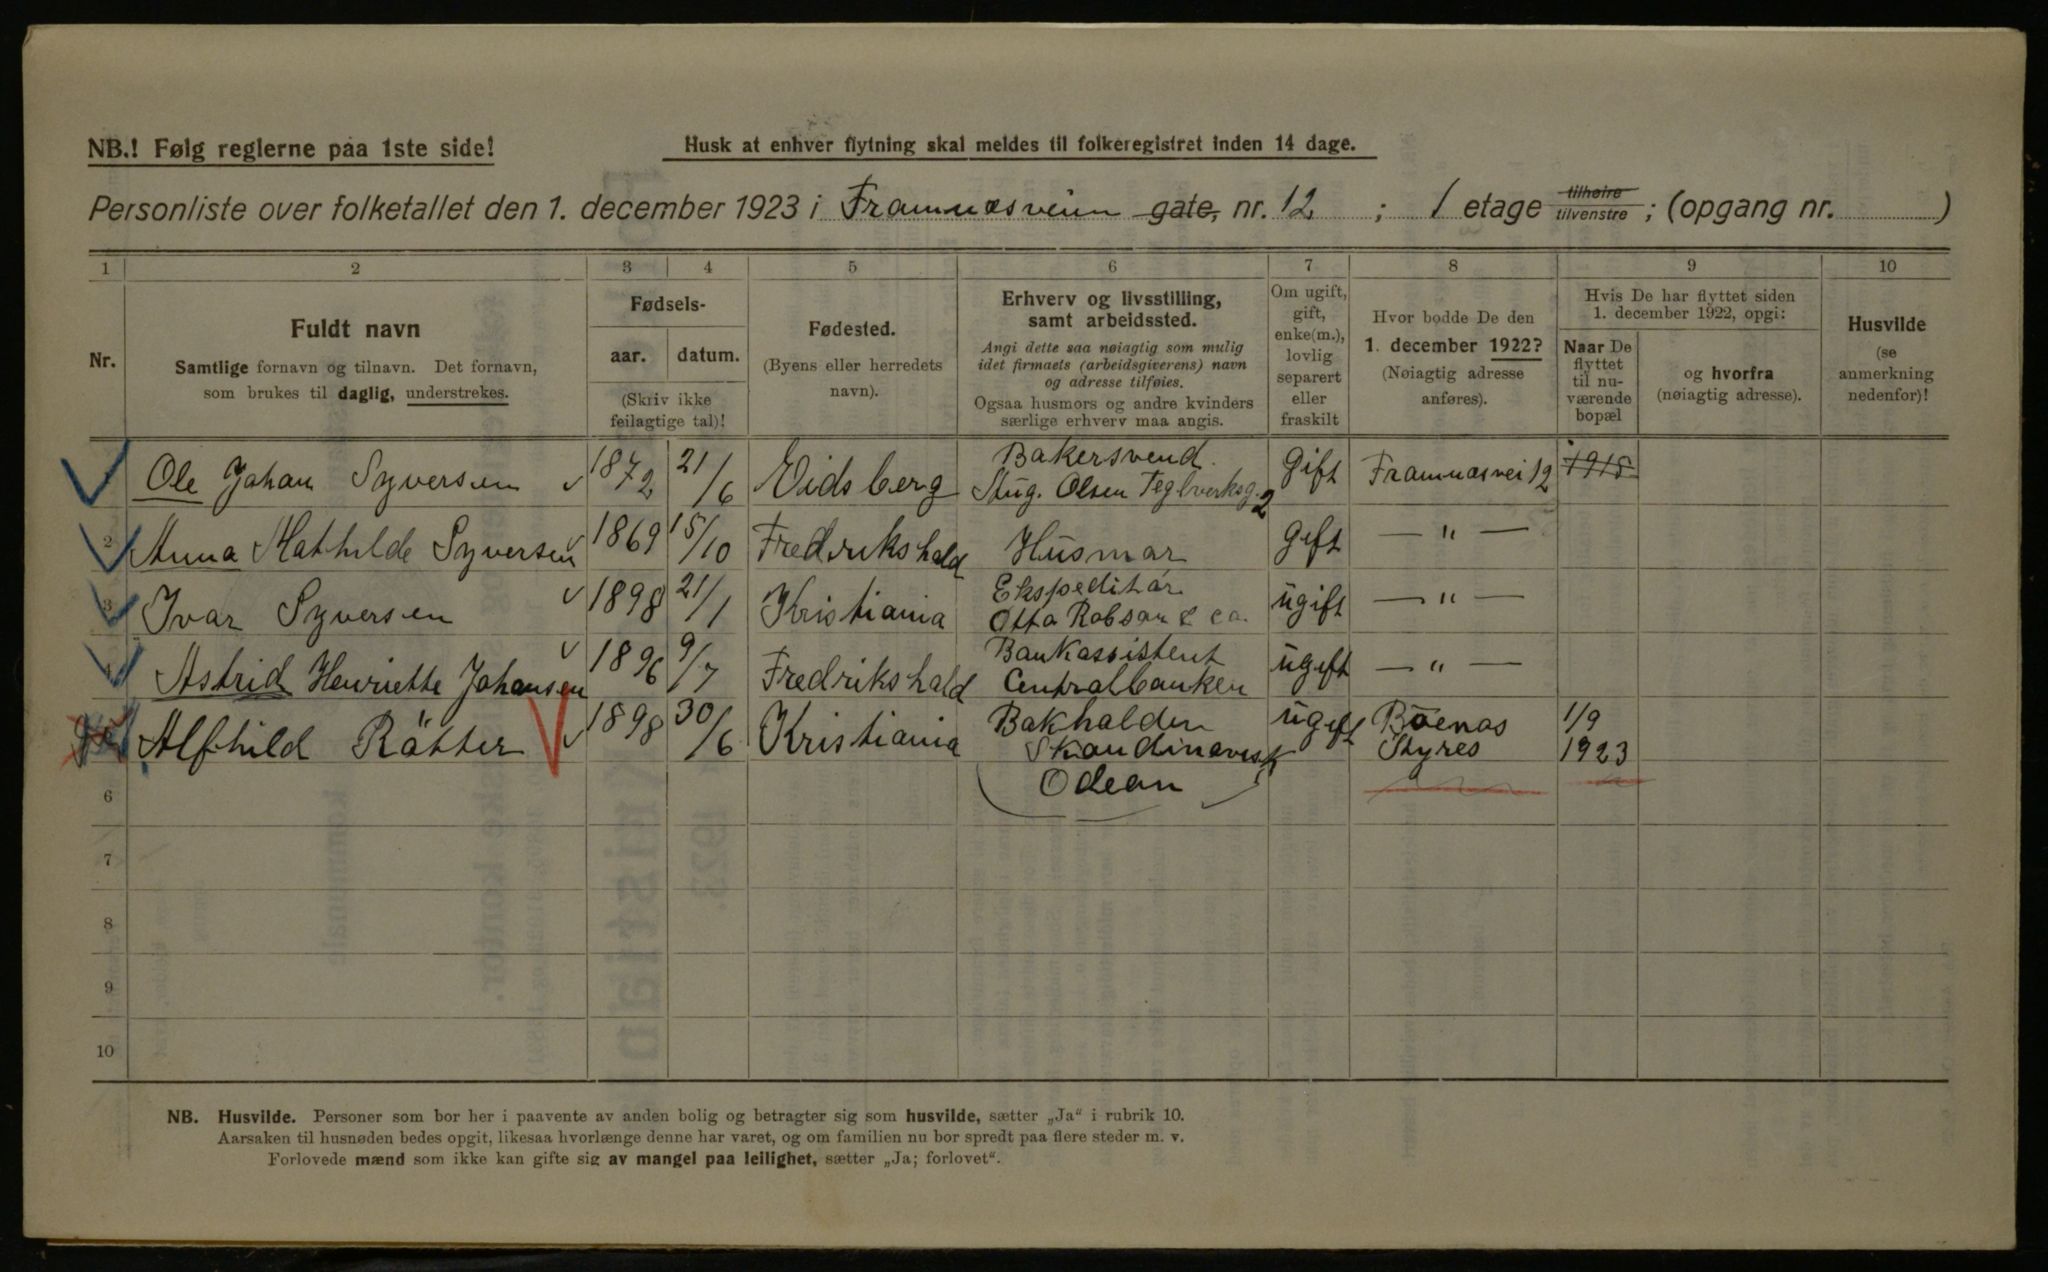 NB.! Følg reglerne paa 1ste side!
Husk at enhver flytning skal meldes til folkeregistret inden 14 dage.
Personliste over folketallet den 1. december 1923 i Framnæsveien gate, nr. 12 ; 1 etage tilhøire tilvenstre ; (opgang nr. )
1 2 3 4 5 6 7 8 9 10
Nr.
Fuldt navn
Samtlige fornavn og tilnavn. Det fornavn,
som brukes til daglig, understrekes.
Fødsels-
aar. datum.
(Skriv ikke
feilagtige tal)!
Fødested.
(Byens eller herredets
navn).
Erhverv og livsstilling,
samt arbeidssted.
Angi dette saa nøiagtig som mulig
idet firmaets (arbeidsgiverens) navn
og adresse tilføies.
Ogsaa husmors og andre kvinders
særlige erhverv maa angis.
Om ugift,
gift,
enke(m.),
lovlig
separert
eller
fraskilt
Hvor bodde De den
1. december 1922?
(Nøiagtig adresse
anføres).
Hvis De har flyttet siden
1. december 1922, opgi:
Naar De
flyttet
til nu-
værende
bopæl
og hvorfra
(nøiagtig adresse).
Husvilde
(se
anmerkning
nedenfor)!
Ole Johan Syversen 1872 21/6 Eidsberg Bakersvend. Aug. Olsen Teglverksg. 2 Gift Framnæsvei 12 1915
2 Anna Mathilde Syversen 1869 15/10 Fredrikshald Husmor gift — " —
3 Ivar Syversen 1898 21/1 Kristiania Ekspeditør Otto Robson & co. ugift — " —
4 Astrid Henriette Johansen 1896 9/7 Fredrikshald Bankassistent Centralbanken ugift — " —
Alfhild Råtter 1898 30/6 Kristiania Bokholder Skandinavisk Odeon ugift Buenos Ayres 1/9 1923
6
7
8
9
10
NB. Husvilde. Personer som bor her i paavente av anden bolig og betragter sig som husvilde, sætter „Ja“ i rubrik 10.
Aarsaken til husnøden bedes opgit, likesaa hvorlænge denne har varet, og om familien nu bor spredt paa flere steder m. v.
Forlovede mænd som ikke kan gifte sig av mangel paa leilighet, sætter „Ja; forlovet“.